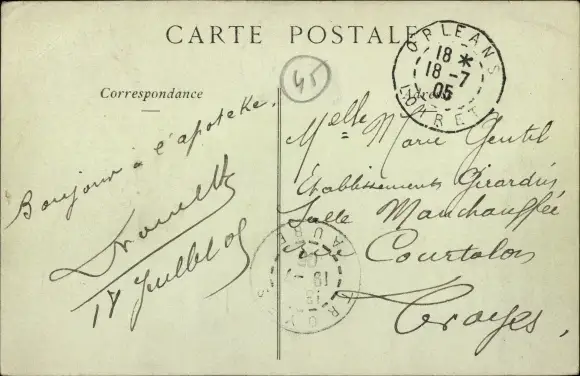 CARTE POSTALE
Correspondance
Adresse
45
ORLEANS
18 *
18 -7
05
LOIRET
Bonjour à l'apoteke.
17 Juillet 05
Melle Marie Gentil
Etablissements Girardin
Salle Manchauffée
rue Courtalon
Troyes.
TROYES
AUBE
19 -7